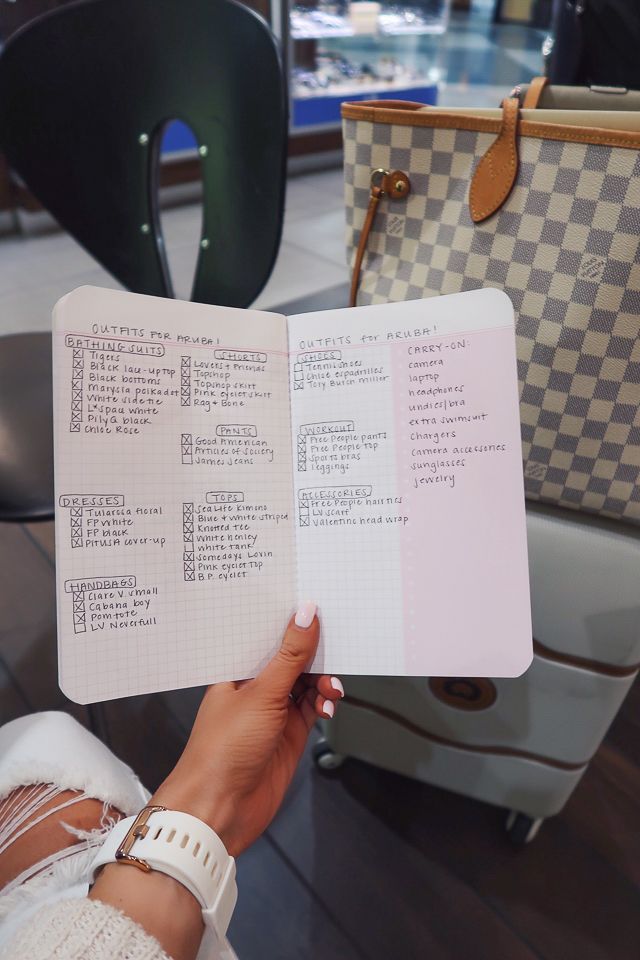 OUTFITS FOR ARUBA!
BATHING SUITS
Tigers
Black lace-up top
Black bottoms
Marysia polka dot
White side tie
L*space white
PilyQ black
Chloe Rose
DRESSES
Tularosa floral
FP White
FP black
PitUSA cover-up
HANDBAGS
Clare V. small
Cabana boy
Pom tote
LV Neverfull
SHORTS
Lovers + Friends
Topshop
Topshop skirt
Pink eyelet skirt
Rag + Bone
PANTS
Good American
Articles of Society
James Jeans
TOPS
Sea Life Kimono
Blue + white striped
Knotted tee
White henley
White tank
Somedays Lovin
Pink eyelet top
B.P. eyelet
OUTFITS for ARUBA!
SHOES
Tennis shoes
Chloe espadrilles
Tory Burch miller
WORKOUT
Free People pants
Free People top
Sports bras
Leggings
ACCESSORIES
Free People hair ties
LV scarf
Valentino head wrap
CARRY-ON:
camera
laptop
headphones
undies/bra
extra swimsuit
chargers
camera accessories
sunglasses
jewelry